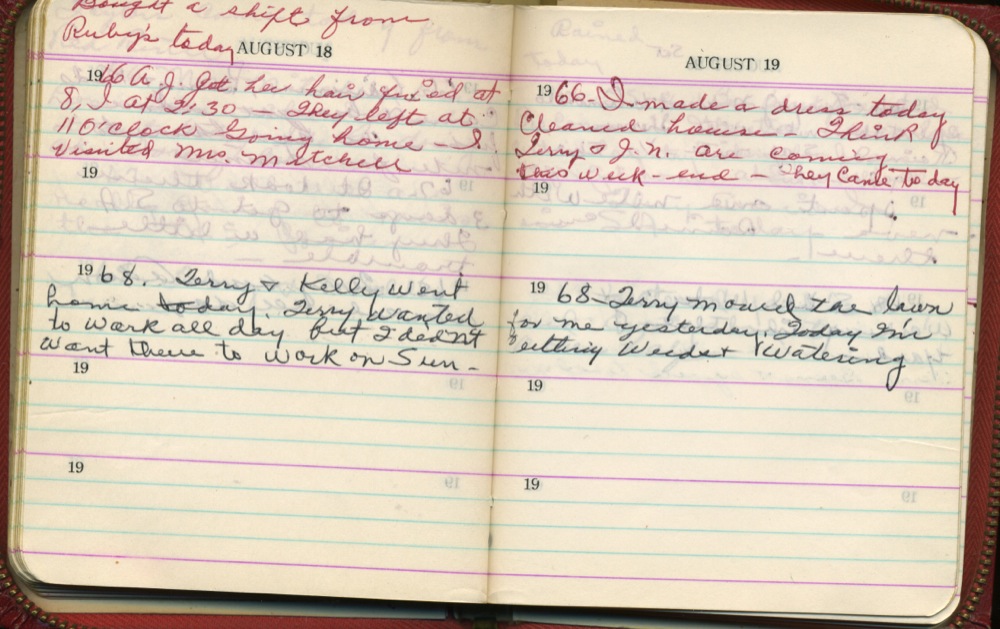 Bought a shift from
Ruby's today
AUGUST 18
1966 A. J. Got her hair fixed at
8, I at 2:30 — They left at
11 O'clock Going home — I
Visited Mrs. Mitchell
19
1968. Terry & Kelly went
home today. Terry wanted
to work all day but I didn't
want them to work on Sun.
19
19
AUGUST 19
1966 - I made a dress today
Cleaned house - Think
Terry & J. N. are coming
this week-end - They came today
19
1968 - Terry mowed the lawn
for me yesterday. Today I'm
cutting weeds & watering
19
19